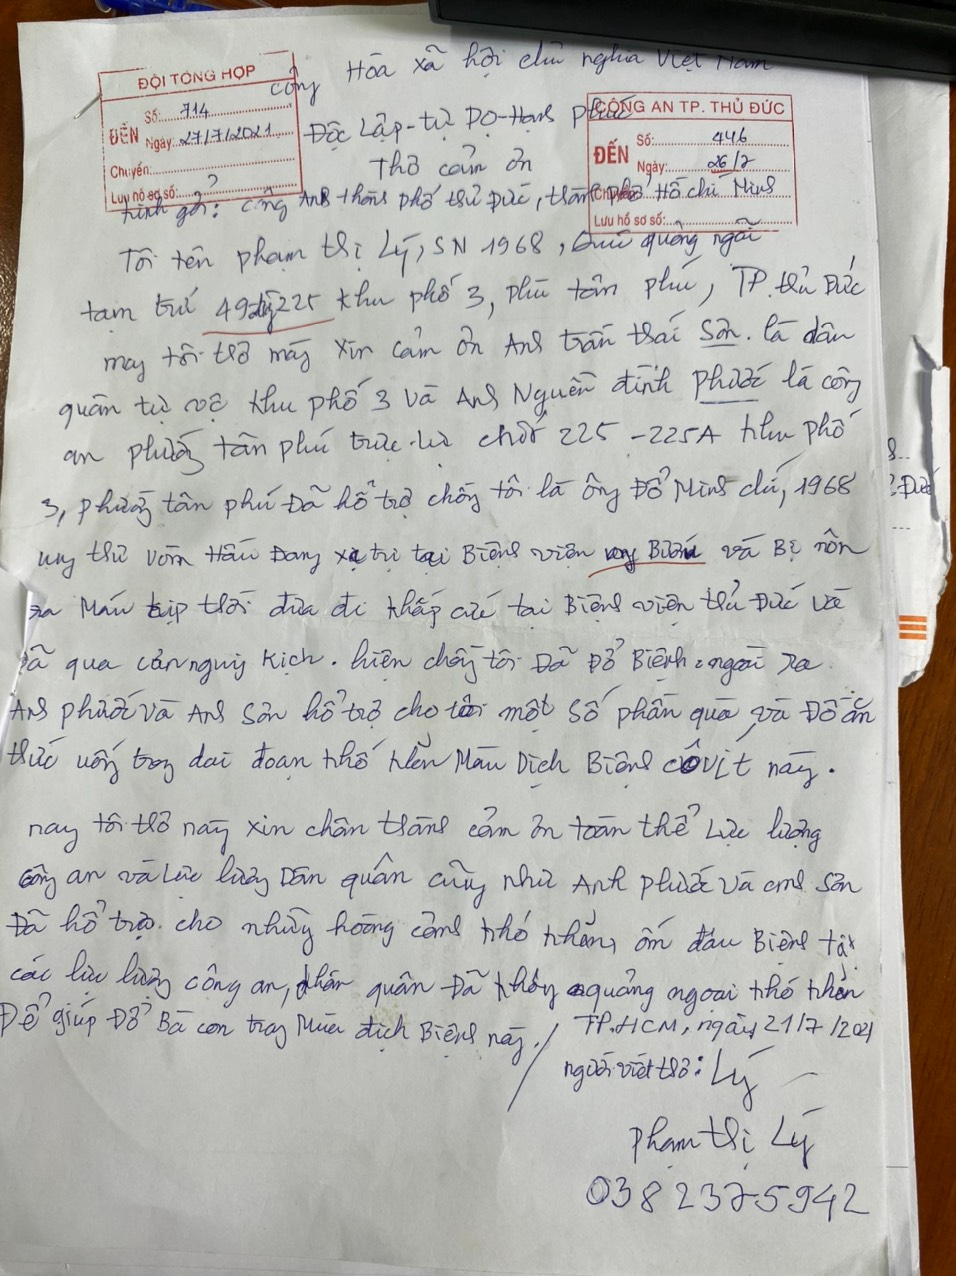 Cộng Hòa xã hội chủ nghĩa Việt Nam
ĐỘI TỔNG HỢP
ĐẾN
Số: 714
Ngày: 27/7/2021
Chuyển:
Lưu hồ sơ số:
CÔNG AN TP. THỦ ĐỨC
ĐẾN
Số: 446
Ngày: 26/7
Lưu hồ sơ số:
Độc Lập - tự Do - Hạnh phúc
Thơ cảm ơn
kính gởi: công Anh thành phố thủ Đức, thành phố Hồ chí Minh
Tôi tên phạm thị Lý, SN 1968, quảng ngãi
tạm trú 225 khu phố 3, phú tân phú, TP. thủ Đức
may tôi thơ mày xin cảm ơn Anh trần thái Sơn. là dân
quân tự vệ khu phố 3 và Anh Nguyễn đình phước là công
an phường tân phú trực chốt 225 - 225A khu phố
3, phường tân phú Đã hổ trợ chồng tôi là ông Đổ Minh chí, 1968
ung thư vòm Hầu Đang xạ trị tại Biệnh viện ung Bướu và Bị nôn
ra Máu kịp thời đưa đi khấp cứu tại Biệnh viện thủ Đức và
Đã qua cơn nguy kịch. hiện chồng tôi Đã Đở Biệnh. ngoài ra
Anh phước và Anh Sơn hổ trợ cho tôi một số phần quà và Đồ ăn
thức uống trong dai đoạn khó khăn Màu Dịch Biệnh covit này.
nay tôi thơ này xin chân thành cảm ơn toàn thể Lực lượng
công an và Lực lượng Dân quân cũng như Anh phước và anh Sơn
Đã hổ trợ. cho những hoàng cảnh khó khăn, ốm đau Biệnh tật
các lực lượng công an, dân quân Đã không quảng ngại khó khăn
Để giúp Đở Bà con trong Mùa địch Biệnh này./
TP.HCM, ngày 21/7/2021
người viết thơ: Lý
phạm thị Lý
0382375942